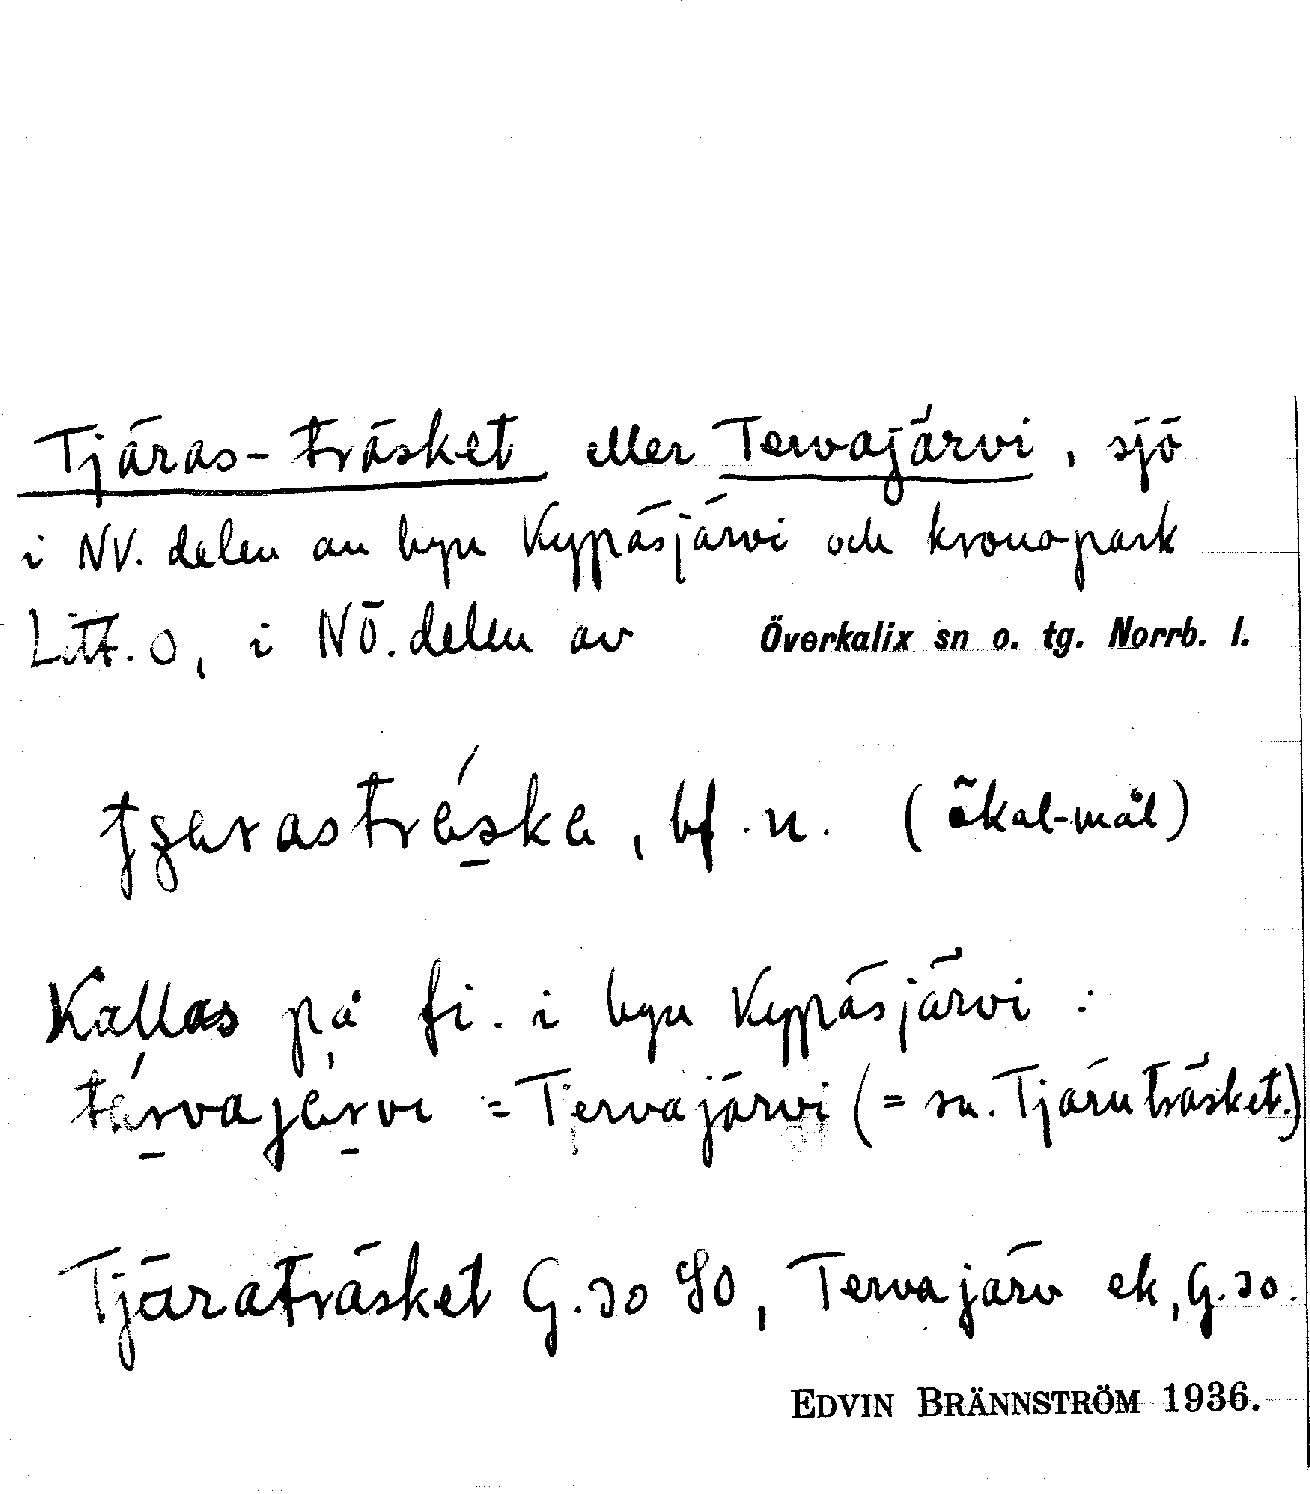 Tjäras-träsket eller Tervajärvi, sjö
i NV. delen av byn Kypäsjärvi och kronopark
Litt. O, i NÖ. delen av Överkalix sn o. tg. Norrb. l.
bf. n. (ökal-mål)
Kallas på fi. i byn Kypäsjärvi :
tervajervi = Tervajärvi (= sv. Tjäruträsket.)
Tjäraträsket G. 30 SO, Tervajärv ek, G. 30.
EDVIN BRÄNNSTRÖM 1936.